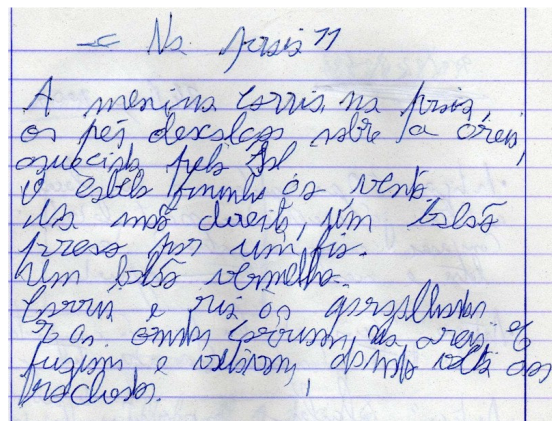 "Na praia"
A menina corria na praia,
os pés descalços sobre a areia,
aquecida pelo sol
o cabelo fininho ao vento.
Na mão direita, um balão
preso por um fio.
Um balão vermelho.
Corria e ria às gargalhadas
e as ondas corriam na areia e
fugiam e voltavam, dando volta aos
rochedos.